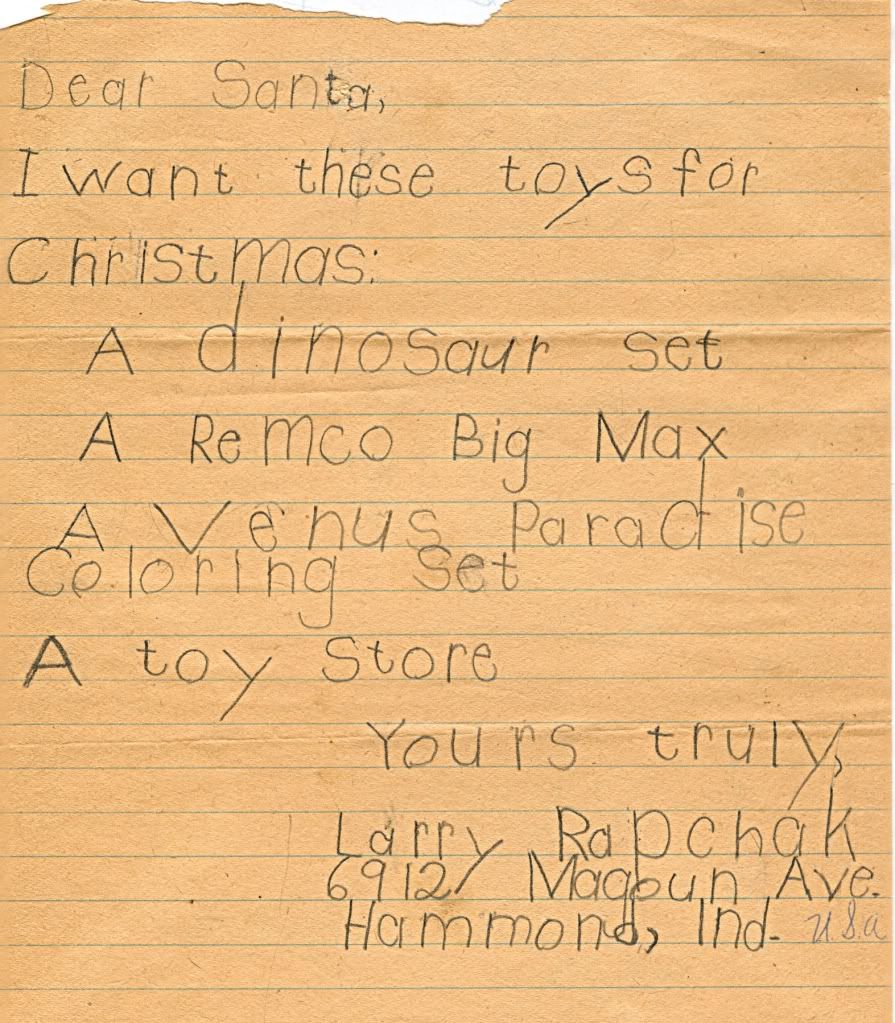 Dear Santa,
I want these toys for
Christmas:
A dinosaur set
A Remco Big Max
A Venus Paradise
Coloring Set
A toy Store
Yours truly,
Larry Rapchak
6912 Magoun Ave.
Hammond, Ind. U.S.a